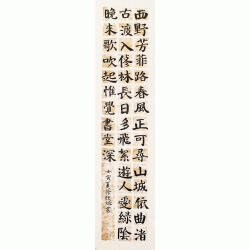 西野芳菲路春風正可尋山城依曲渚
古渡入修林長日多飛絮遊人愛綠陰
晚来歌吹起惟覺畫堂深
壬寅夏